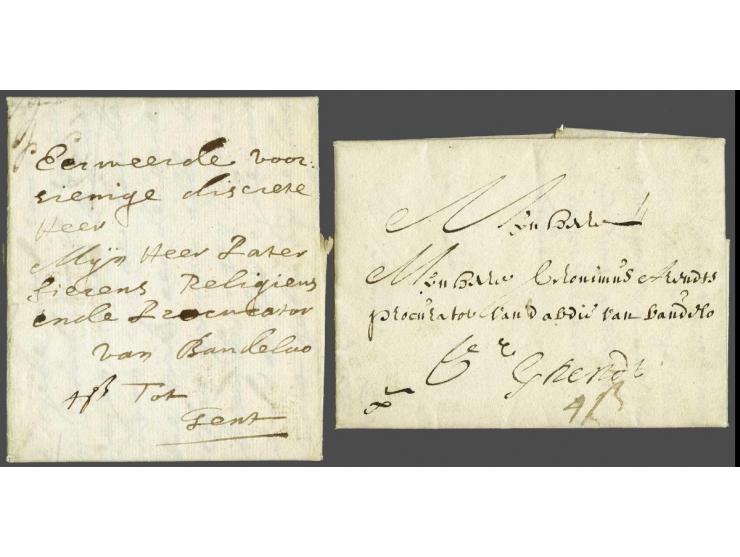 Eerweerde voor-
sienige discrete
Heer
Mijn Heer Pater
Sierens Religieus
ende Procurator
van Bandeloo
4ß Tot
Gent
Mÿn Heere
Mÿn Heere Eronimus Arendts
procurator van d abdie van baudelo
Ghendt
4ß